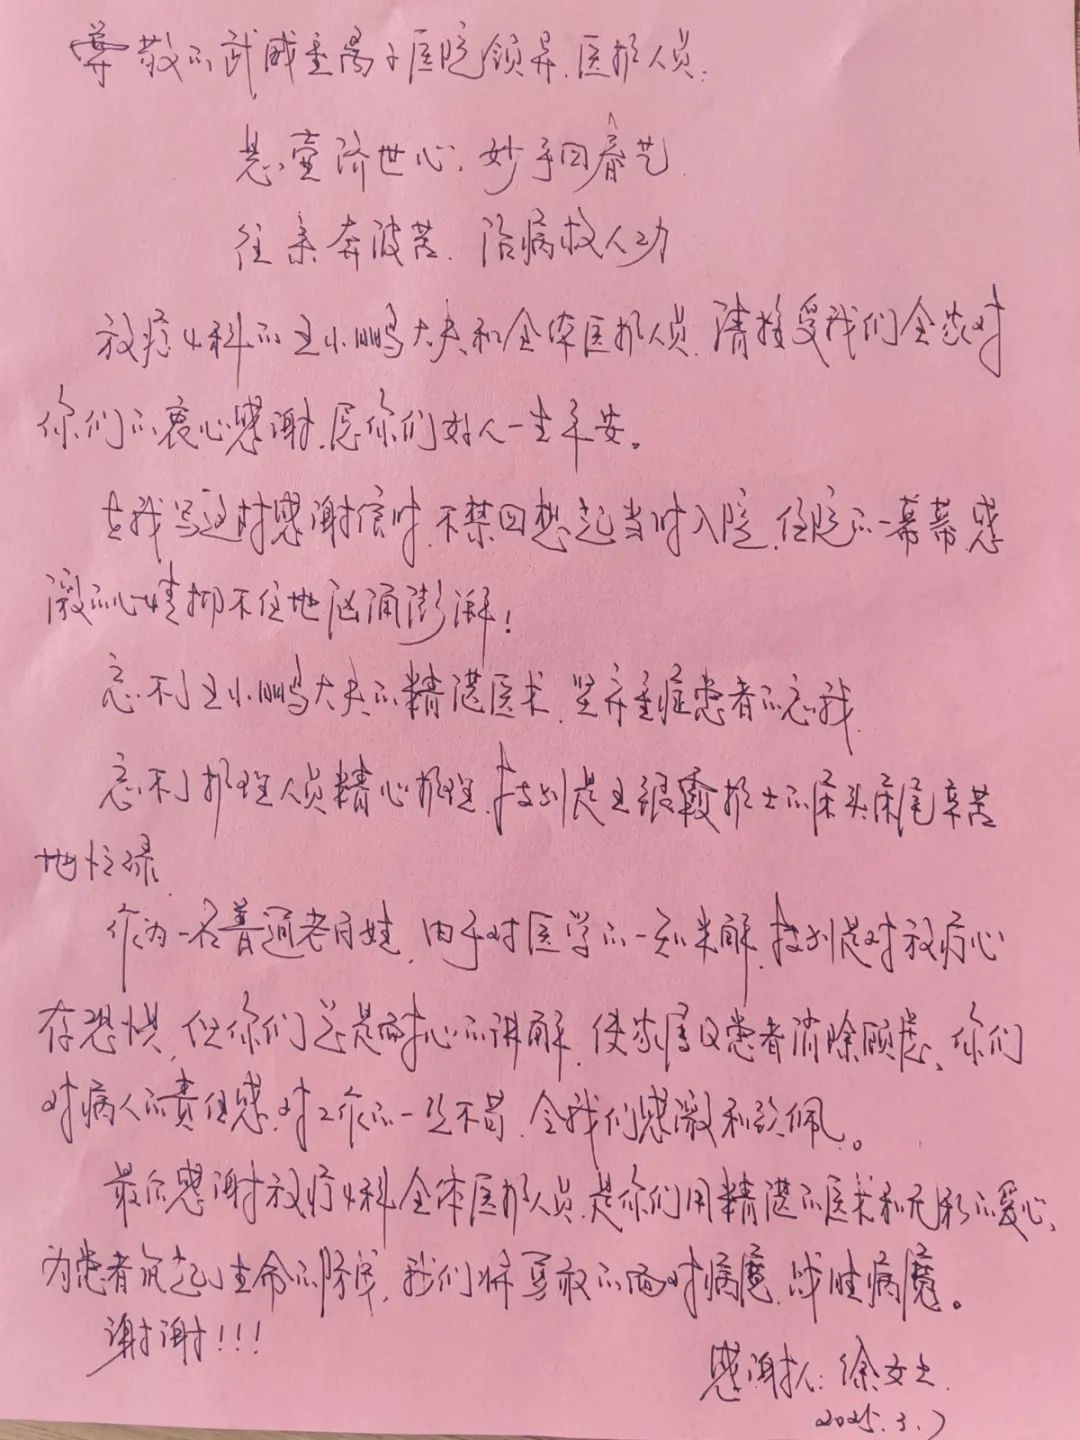 尊敬的武威重离子医院领导、医护人员:
悬壶济世心、妙手回春艺
往来奔波苦、治病救人功
放疗4科的王小鹏大夫和全体医护人员、请接受我们全家对
你们的衷心感谢、愿你们好人一生平安。
在我写这封感谢信时、不禁回想起当时入院、住院的一幕幕、感
激的心情抑不住地汹涌澎湃!
忘不了王小鹏大夫的精湛医术、坚守重症患者的忘我
忘不了护理人员精心护理、特别是王银霞护士的床头床尾辛苦
地忙碌
作为一名普通老百姓，由于对医学的一知半解、特别是对放疗心
存恐惧，但你们总是耐心的讲解、使家属及患者消除顾虑、你们
对病人的责任感、对工作的一丝不苟、令我们感激和钦佩。
最后感谢放疗4科全体医护人员、是你们用精湛的医术和无私的爱心、
为患者筑起了生命的防线，我们将勇敢的面对病魔、战胜病魔。
谢谢!!!
感谢人:徐女士
2025.3.7